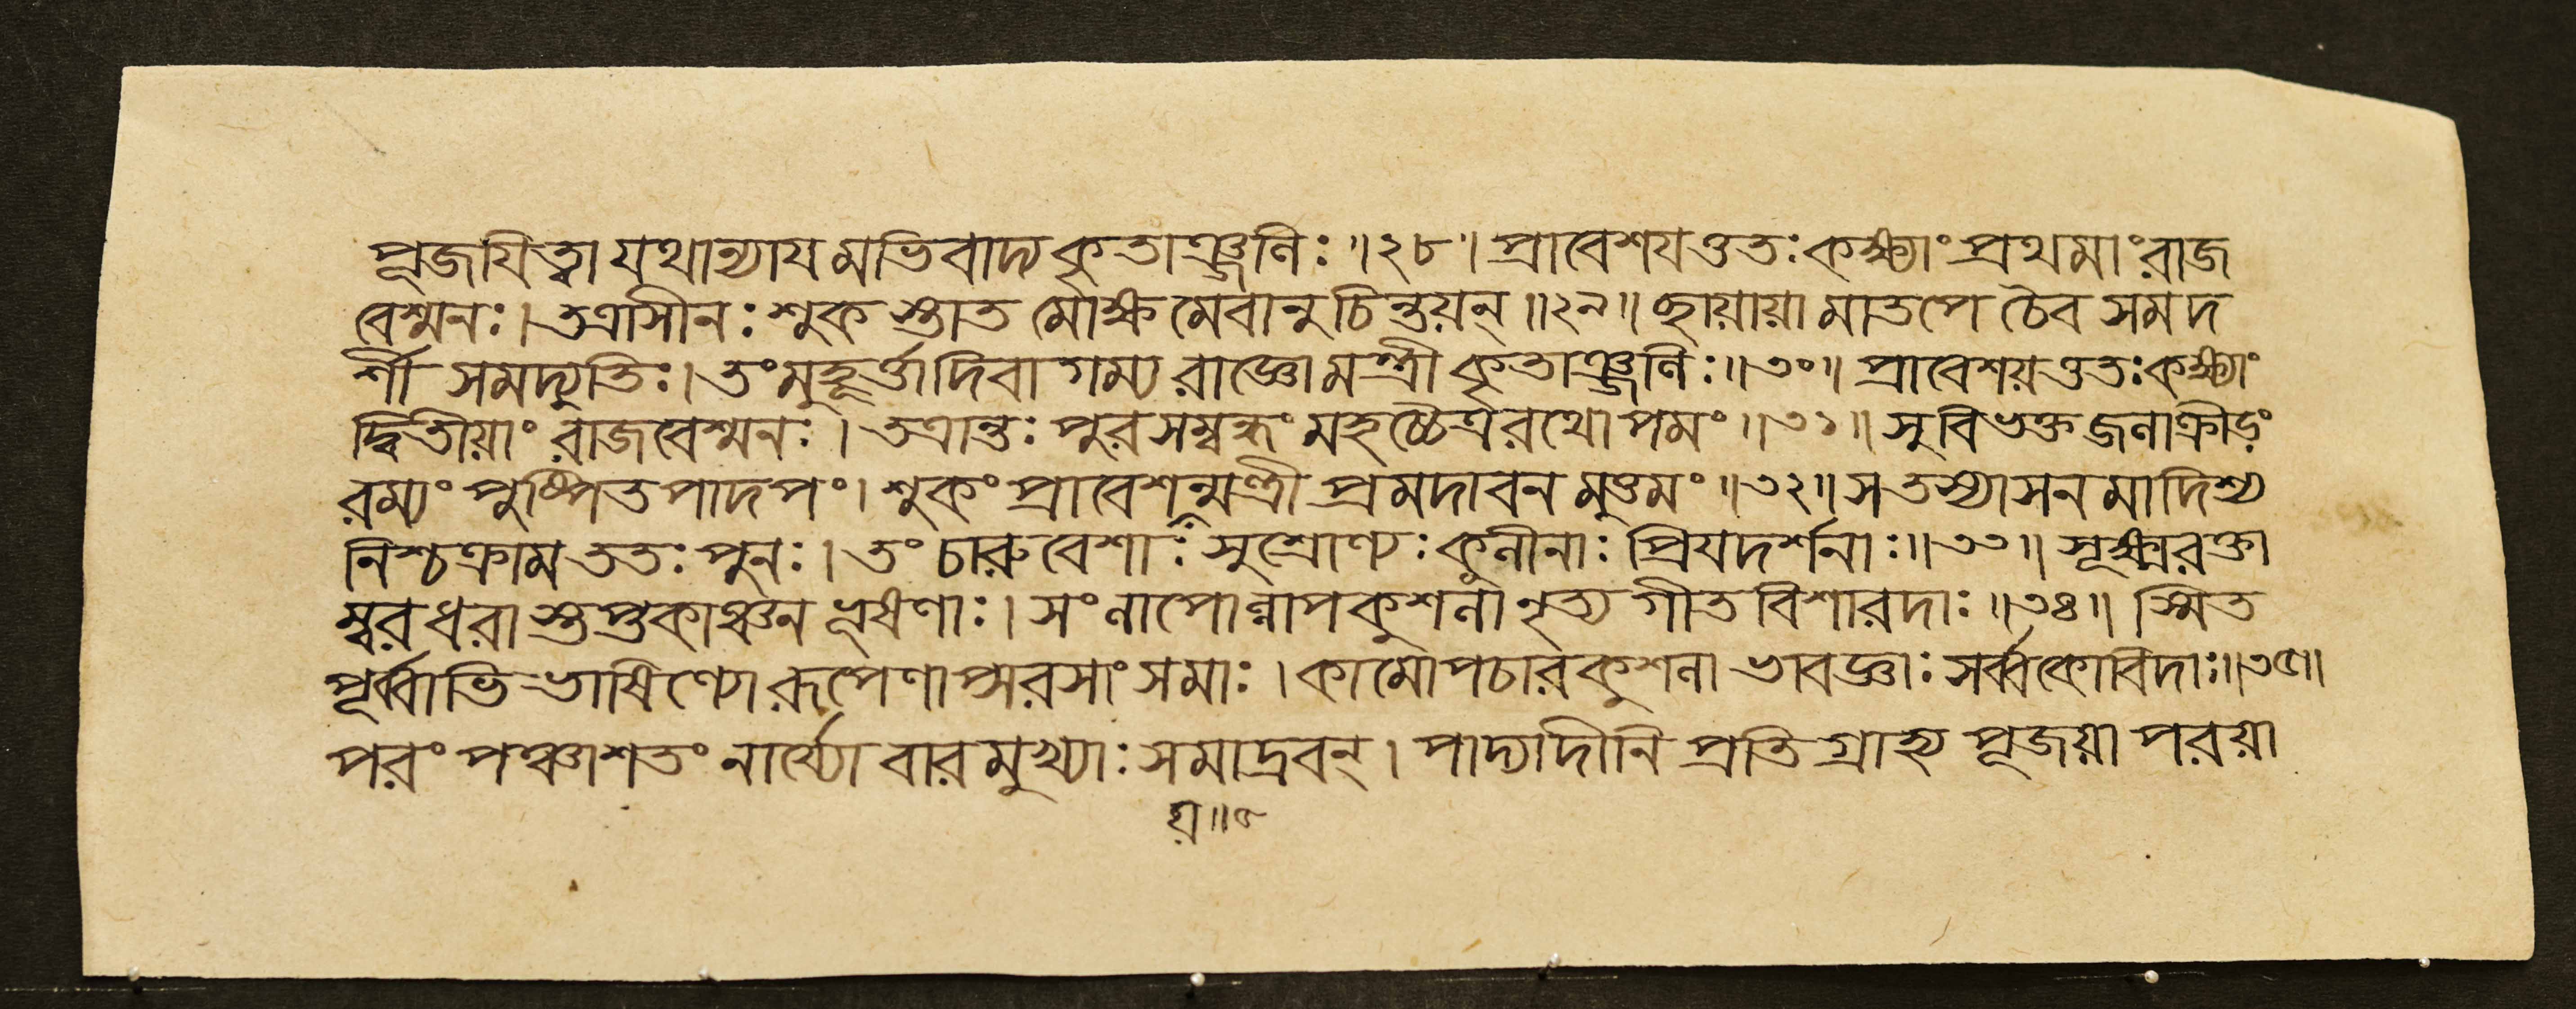 পূজয়িত্বা যথান্যায মভিবাদ্য কৃতাঞ্জলিঃ ॥২৮॥ প্রাবেশযত্ততঃ কক্ষ্যাং প্রথমাং রাজ
বেশ্মনঃ। তত্রাসীনঃ শুক স্তাত মোক্ষ মেবানু চিন্তয়ন্ ॥২৯॥ ছায়ায়া মাতপে চৈব সমদ
র্শী সমদ্যুতিঃ। তং মুহূর্ত্তাদিবা গম্য রাজ্ঞো মন্ত্রী কৃতাঞ্জলিঃ॥৩০॥ প্রাবেশয়ত্ততঃ কক্ষ্যাং
দ্বিতীয়াং রাজবেশ্মনঃ। তত্রান্তঃ পুর সম্বদ্ধং মহচ্চৈত্ররথোপমং॥৩১॥ সুবিভক্ত জলাক্রীড়ং
রম্যং পুষ্পিত পাদপং। শুকং প্রাবেশন্মন্ত্রী প্রমদাবন মুত্তমং॥৩২॥ স তস্যাসন মাদিশ্য
নিশ্চক্রাম ততঃ পুনঃ। তং চারু বেশাঃ সুশ্রোণ্যঃ কুলীনাঃ প্রিযদর্শনাঃ॥৩৩॥ সূক্ষ্মরক্তা
ম্বর ধরা স্তপ্তকাঞ্চন ভূষণাঃ। সংলাপোল্লাপ কুশলা নৃত্য গীত বিশারদাঃ॥৩৪॥ স্মিত
পূর্ব্বাভি ভাষিণ্যো রূপেণাপ্সরসাং সমাঃ। কামোপচার কুশলা ভাবজ্ঞাঃ সর্ব্বকোবিদাঃ॥৩৫॥
পরং পঞ্চাশতং নার্য্যো বারমুখ্যাঃ সমাদ্রবন্। পাদ্যাদীনি প্রতি গ্রাহ্য পূজয়া পরয়া